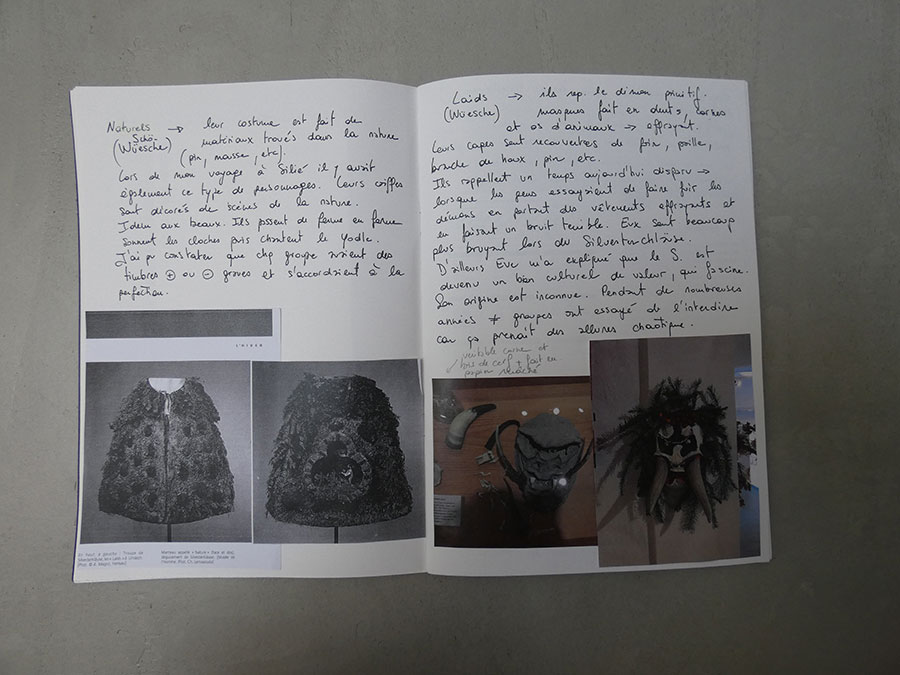 Naturels → leur costume est fait de
Schö- matériaux trouvés dans la nature
(Wüesche) (pin, mousse, etc).
Lors de mon voyage à Silié il y avait
également ce type de personnages. Leurs coiffes
sont décorés de scènes de la nature.
Idem aux beaux. Ils passent de ferme en ferme
sonnent les cloches puis chantent le Yodle.
J'ai pu constater que chq groupe avaient des
timbres ⊕ ou ⊖ graves et s'accordaient à la
perfection.
Laids → ils rep. le démon primitif.
(Wüesche) masques fait en dents, cornes
et os d'animaux → effrayant.
Leurs capes sont recouvertes de foin, paille,
branche de houx, pin, etc.
Ils rappellent un temps aujourd'hui disparu →
lorsque les gens essayaient de faire fuir les
démons en portant des vêtements effrayants et
en faisant un bruit terrible. Eux sont beaucoup
plus bruyant lors du Silvesterchläuse.
D'ailleurs Eve m'a expliqué que le S. est
devenu un bien culturel de valeur, qui fascine.
Son origine est inconnue. Pendant de nombreuses
années ≠ groupes ont essayé de l'interdire
car ça prenait des allures chaotique.
véritable corne et
bois de cerf + fait en
papier mâché